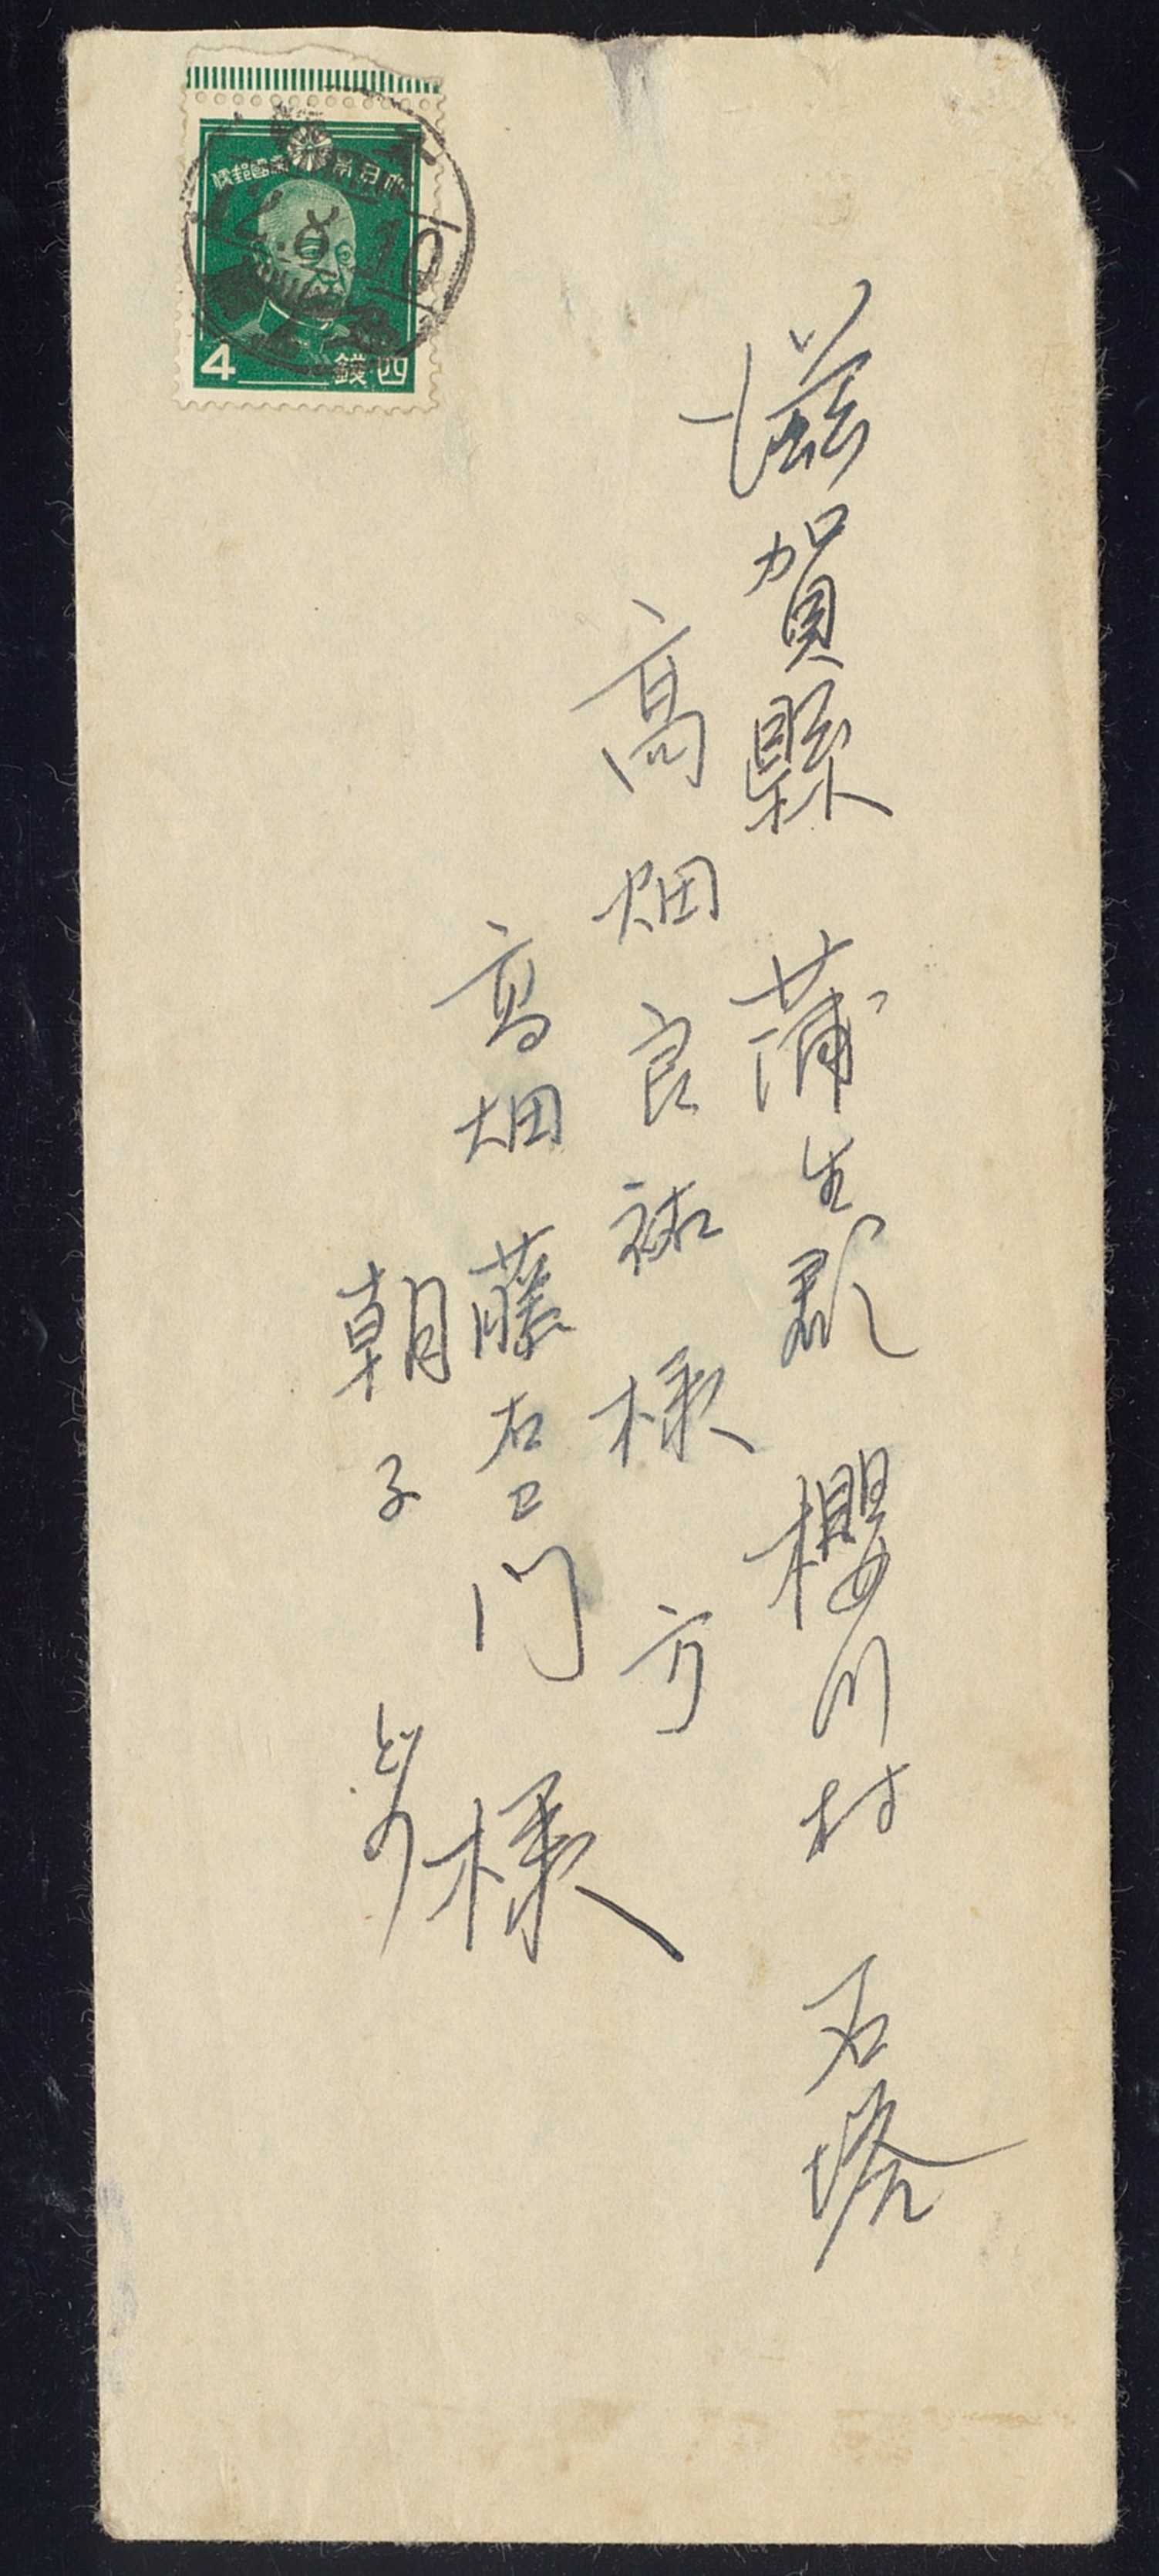 滋賀縣 蒲生郡 櫻川村 石塔
高畑良祐様方
高畑藤右エ門様
朝子
大日本帝國郵便
12.8.10
4 四錢